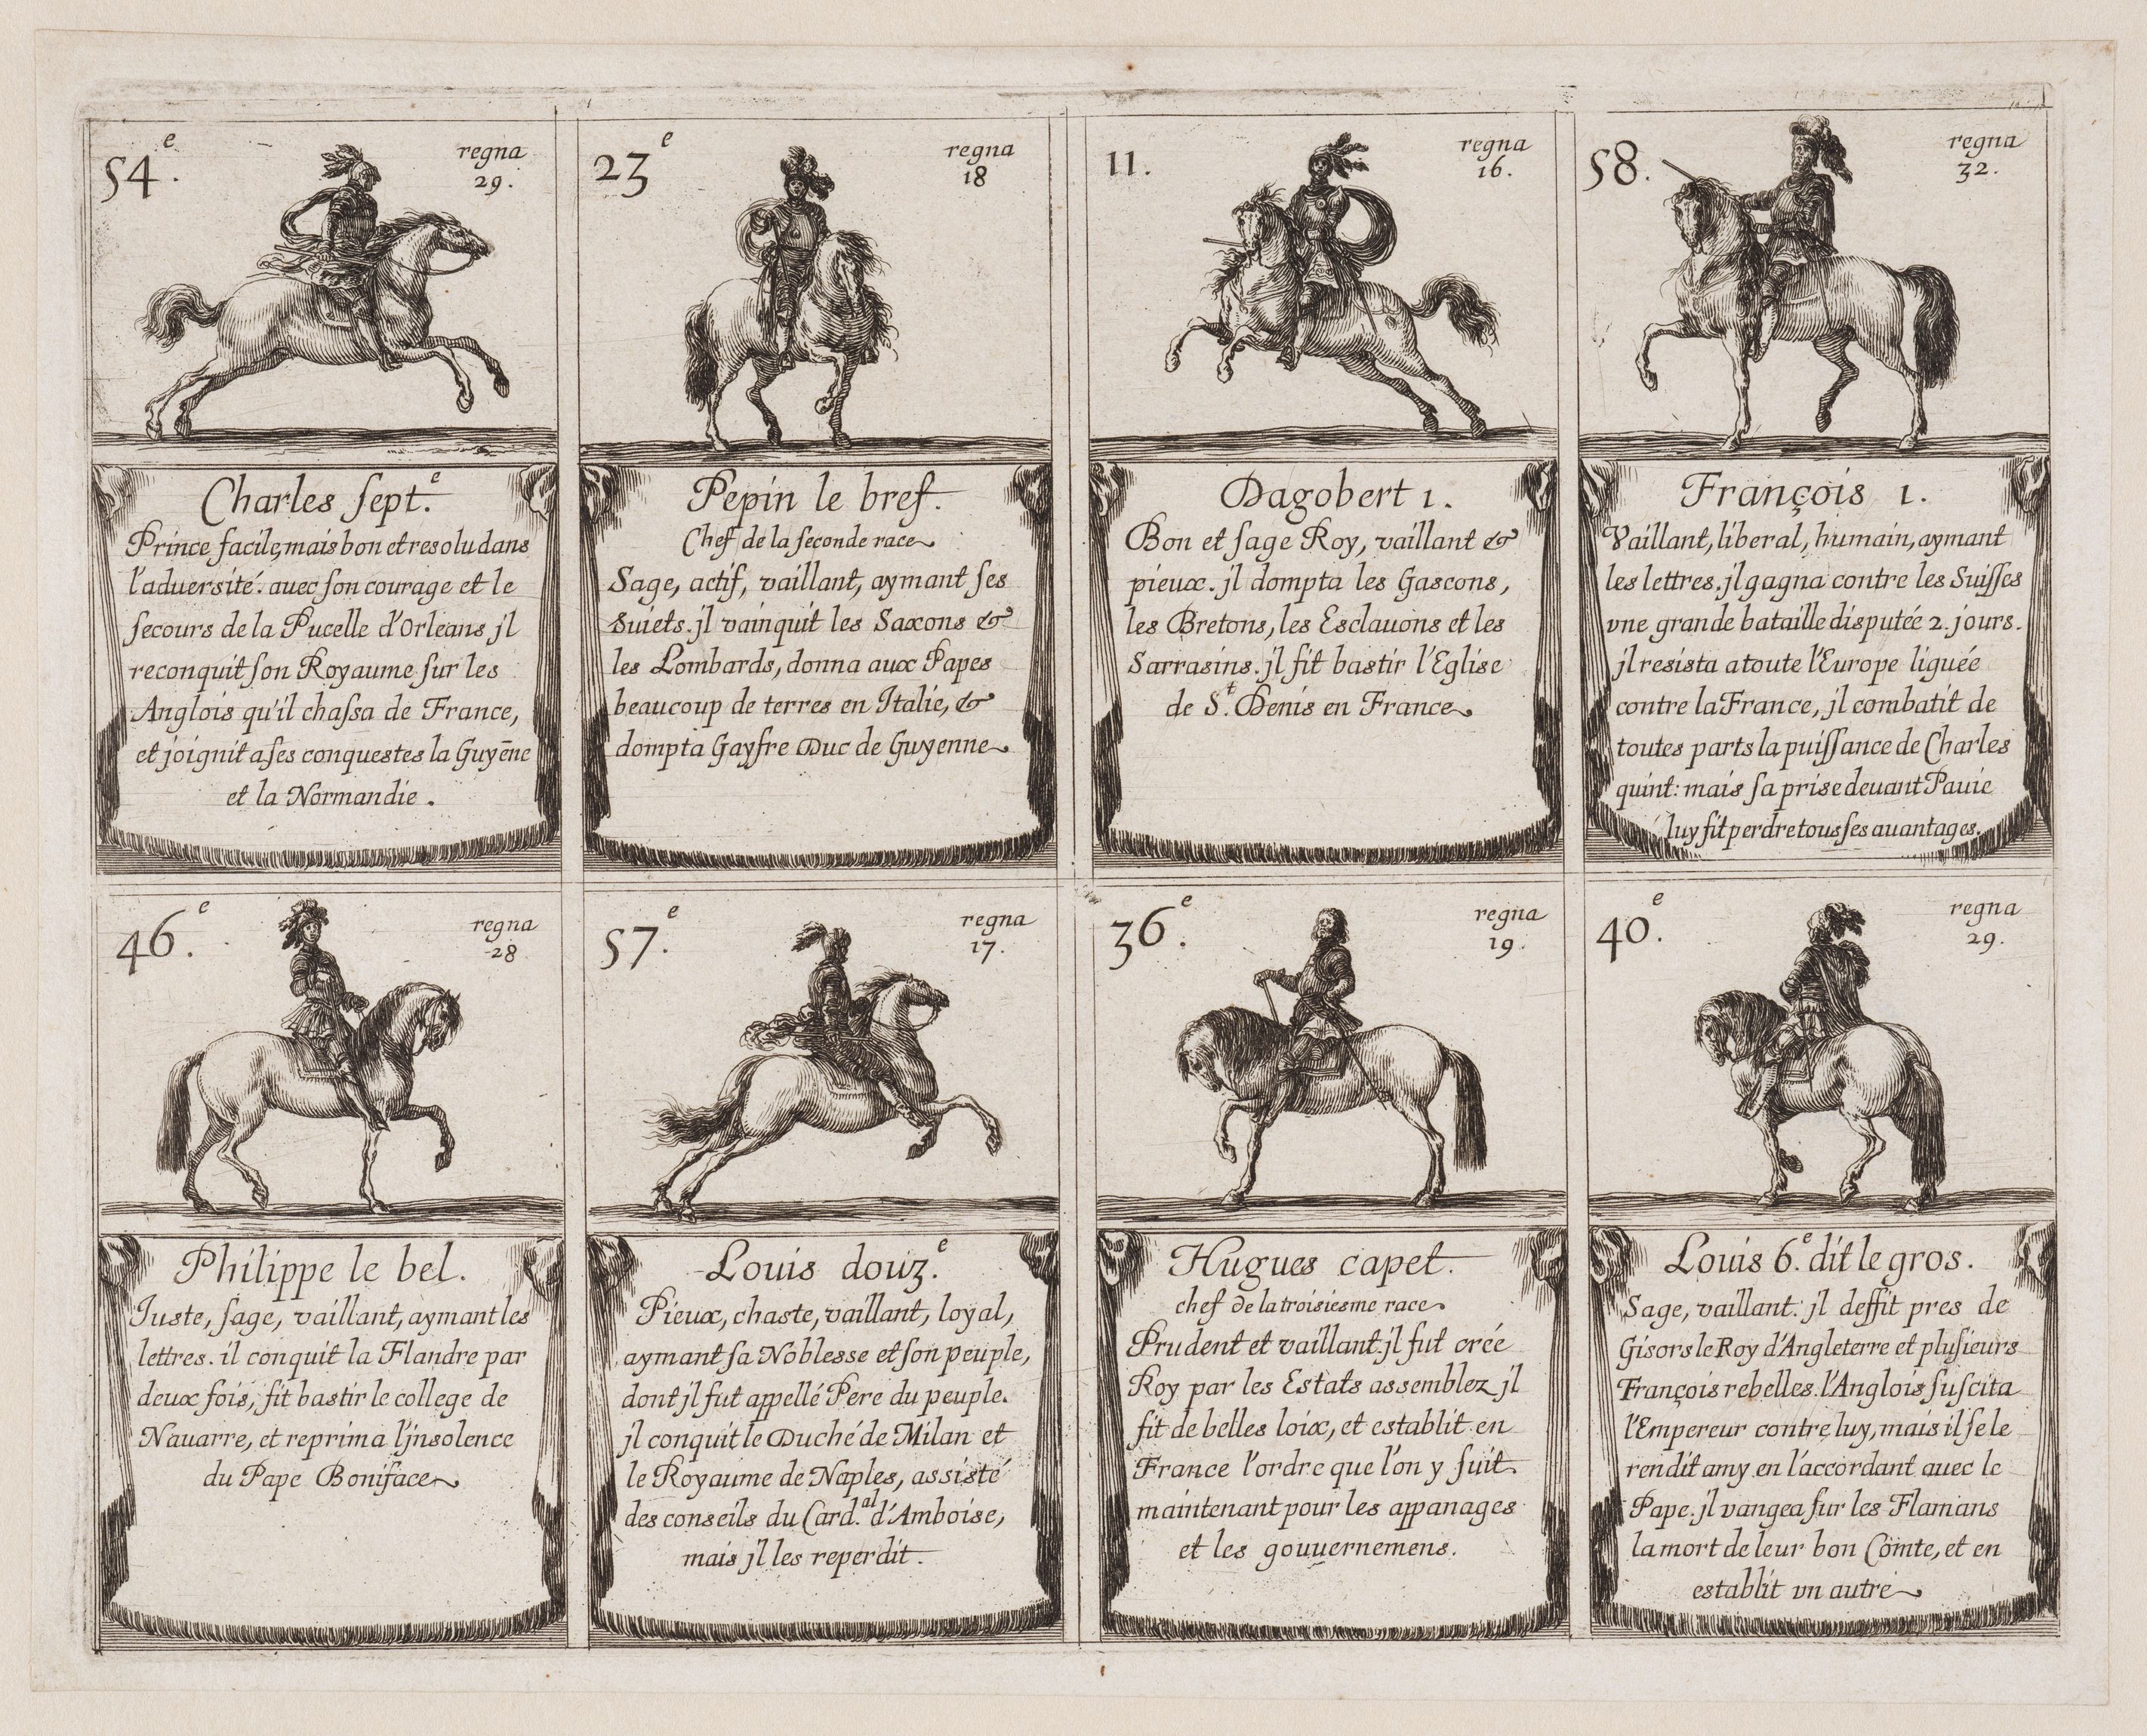 54.e
regna
29.
Charles ſept.e
Prince facile, mais bon et resolu dans
l'aduersité. auec ſon courage et le
ſecours de la Pucelle d'Orleans jl
reconquit ſon Royaume ſur les
Anglois qu'il chaſsa de France,
et joignit a ſes conquestes la Guyēne
et la Normandie.
23e
regna
18
Pepin le bref.
Chef de la ſeconde race
Sage, actif, vaillant, aymant ſes
suiets. jl vainquit les Saxons &
les Lombards, donna aux Papes
beaucoup de terres en Italie, &
dompta Gayfre Duc de Guyenne
11.
regna
16.
Dagobert 1.
Bon et ſage Roy, vaillant &
pieux. jl dompta les Gascons,
les Bretons, les Esclauons et les
Sarrasins. jl fit bastir l'Eglise
de S.t Denis en France
58.
regna
32.
François 1.
Vaillant, liberal, humain, aymant
les lettres. jl gagna contre les Suiſſes
vne grande bataille disputée 2. jours.
jl resista a toute l'Europe liguée
contre la France, jl combatit de
toutes parts la puiſſance de Charles
quint: mais ſa prise deuant Pauie
luy fit perdre tous ſes auantages.
46.e
regna
28
Philippe le bel.
Iuste, ſage, vaillant, aymant les
lettres. il conquit la Flandre par
deux fois, fit bastir le college de
Nauarre, et reprima l'jnsolence
du Pape Boniface
57.e
regna
17.
Louis douz.e
Pieux, chaste, vaillant, loyal,
aymant ſa Noblesse et ſon peuple,
dont jl fut appellé Pere du peuple.
jl conquit le Duché de Milan et
le Royaume de Naples, assisté
des conseils du Card.al d'Amboise,
mais jl les reperdit.
36.e
regna
19.
Hugues capet.
chef de la troisiesme race
Prudent et vaillant. jl fut crée
Roy par les Estats assemblez jl
fit de belles loix, et establit en
France l'ordre que l'on y ſuit
maintenant pour les appanages
et les gouuernemens.
40.e
regna
29.
Louis 6.e dit le gros.
Sage, vaillant. jl deffit pres de
Gisors le Roy d'Angleterre et pluſieurs
François rebelles. l'Anglois ſuſcita
l'Empereur contre luy, mais il ſe le
rendit amy en l'accordant auec le
Pape. jl vangea ſur les Flamans
la mort de leur bon Cōmte, et en
establit vn autre